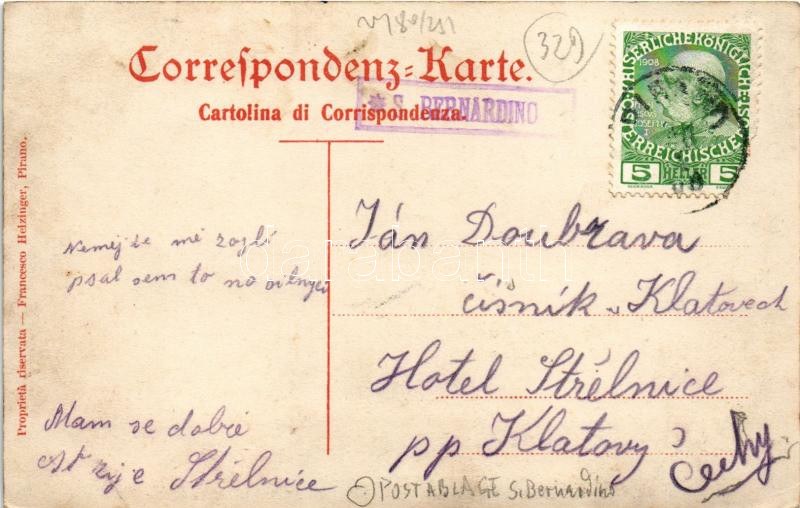 329
Correspondenz=Karte.
Cartolina di Corrispondenza.
* S. BERNARDINO
KAISERLICHE KÖNIGLICHE
ÖSTERREICHISCHE
1908
5 HELLER 5
Proprietà riservata — Francesco Helzinger, Pirano.
Nemějte mě zozlí
psal sem to na
Mam se dobře
At žije Střélnice
Ján Doubrava
čisník v Klatovech
Hotel Strélnice
pp Klatovy
Čechy
POSTABLAGE S. Bernardino
darabanth